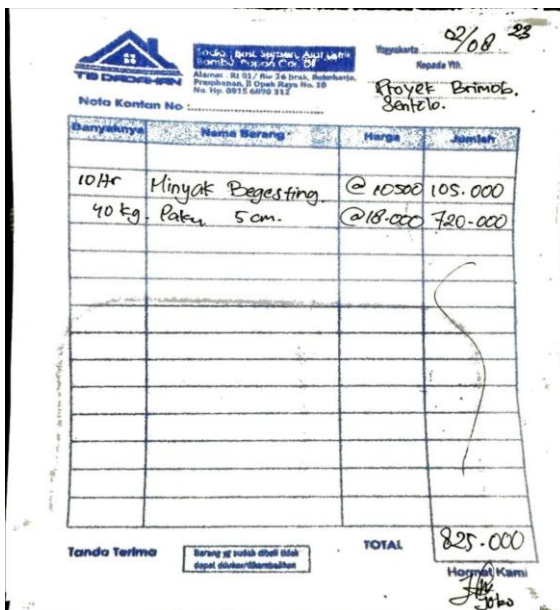 TB DADAHAN
Alamat : Rt 01/ Rw 26 Jirak,
Jl Opak Raya No. 10
No. Hp. 0815 6890 312
Yogyakarta 02/08 23
Kepada Yth.
Proyek Brimob.
Sentolo.
Nota Kontan No :
Banyaknya Nama Barang Harga Jumlah
10 ltr Minyak Begesting. @ 10500 105.000
40 kg. Paku 5 cm. @18.000 720.000
Tanda Terima
Barang yg sudah dibeli tidak
dapat ditukar/dikembalikan
TOTAL 825.000
Hormat Kami
Joko